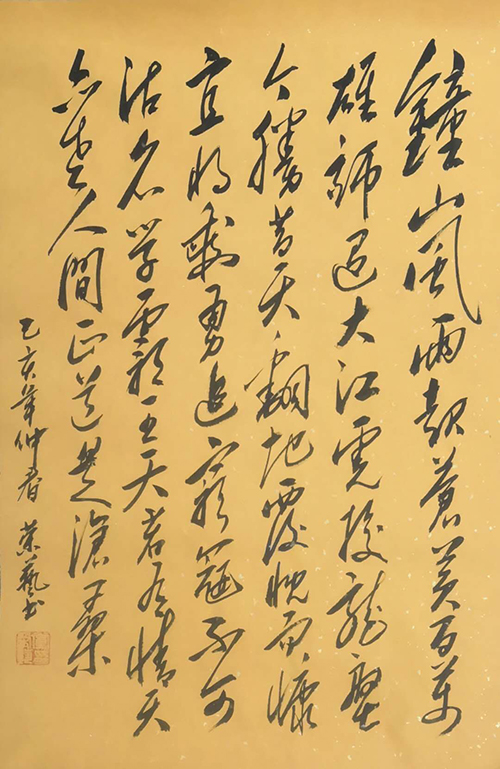 鐘山風雨起蒼黃百萬
雄師過大江虎踞龍盤
今勝昔天翻地覆慨而慷
宜將剩勇追窮寇不可
沽名學霸王天若有情天
亦老人間正道是滄桑
乙亥年仲春 荣藝书